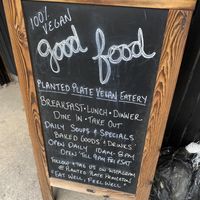 100% VEGAN
good food
PLANTED PLATE VEGAN EATERY
BREAKFAST · LUNCH · DINNER
DINE IN · TAKE OUT
DAILY SOUPS & SPECIALS
BAKED GOODS & DRINKS
OPEN DAILY 10AM - 8PM
OPEN 'TIL 9PM FRI & SAT
FOLLOW US ON INSTAGRAM
@ PLANTED PLATE PRINCETON
"EAT WELL, FEEL WELL"